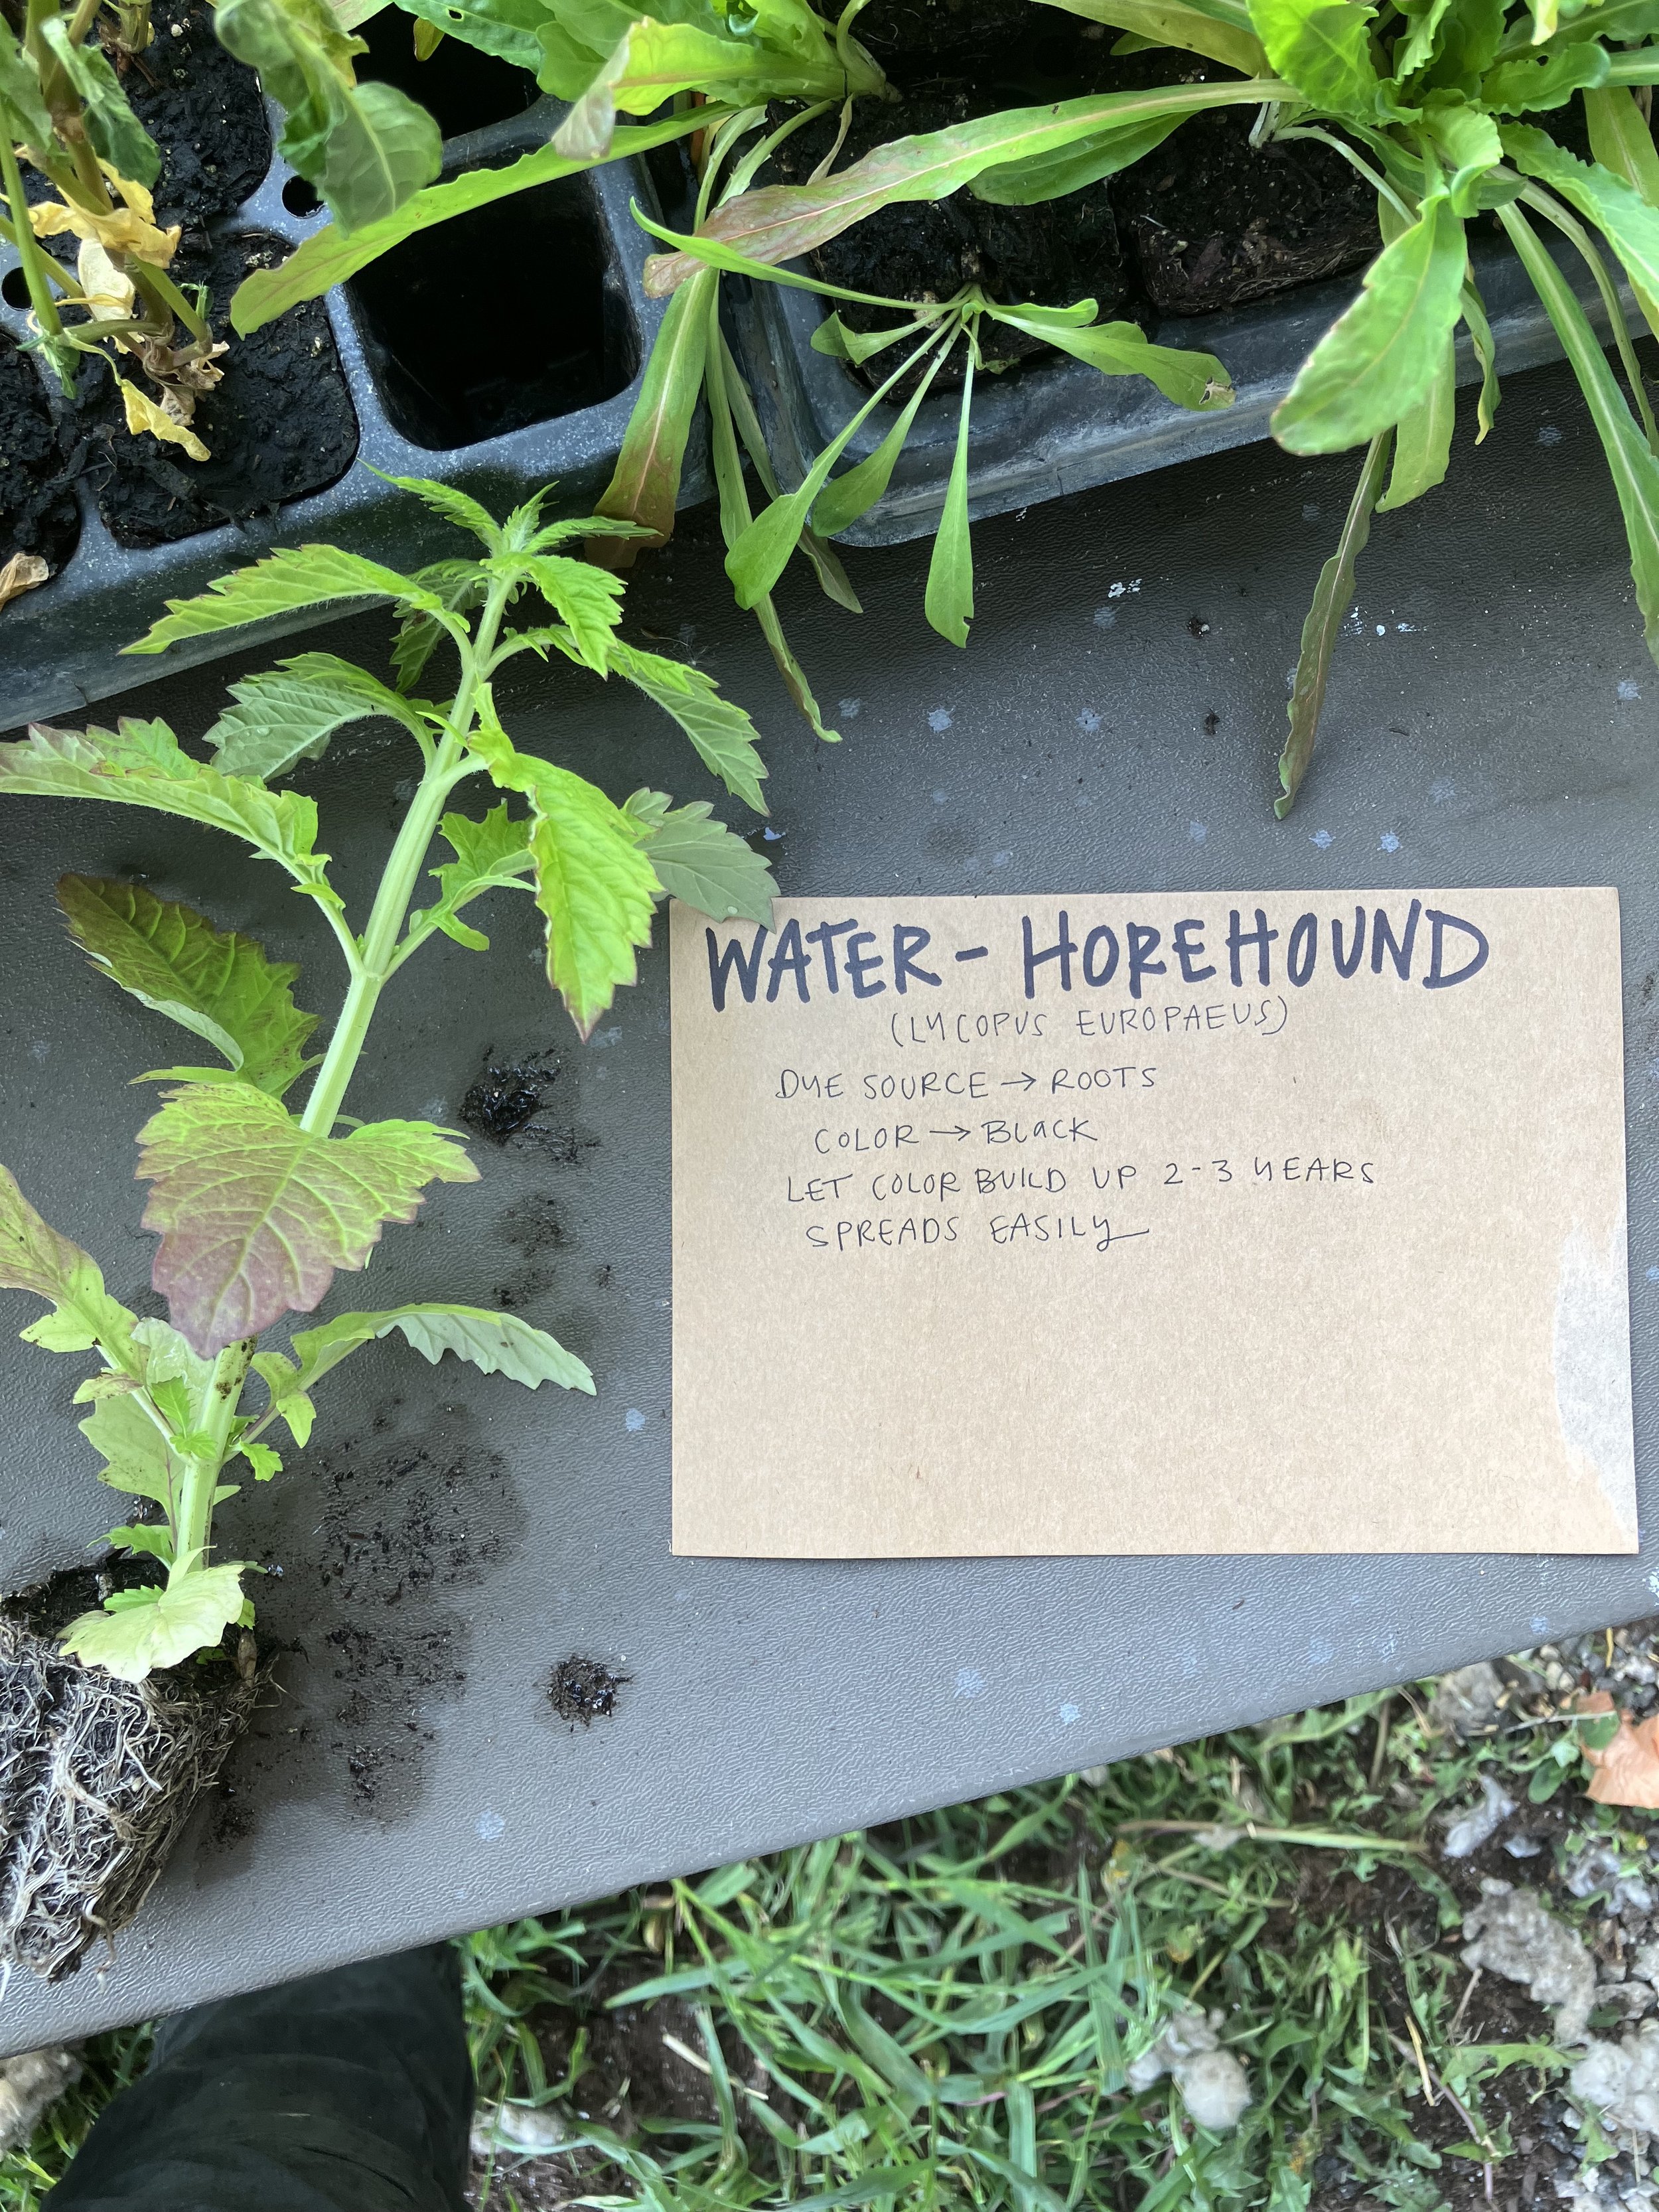 WATER - HOREHOUND
(LYCOPUS EUROPAEUS)
DYE SOURCE → ROOTS
COLOR → BLACK
LET COLOR BUILD UP 2-3 YEARS
SPREADS EASILY